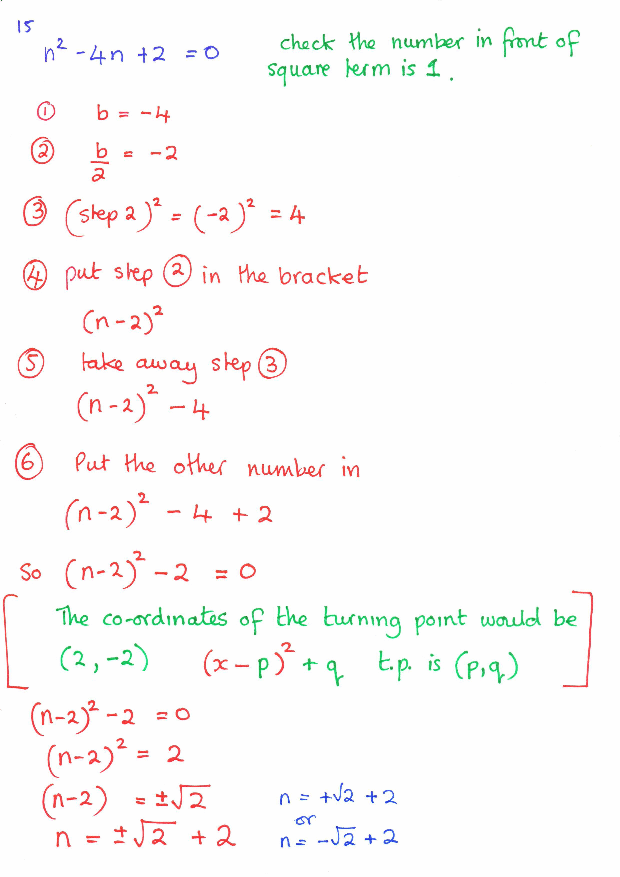 15
n² - 4n + 2 = 0
check the number in front of
square term is 1.
① b = -4
② b/2 = -2
③ (step 2)² = (-2)² = 4
④ put step ② in the bracket
(n-2)²
⑤ take away step ③
(n-2)² - 4
⑥ Put the other number in
(n-2)² - 4 + 2
So (n-2)² - 2 = 0
[The co-ordinates of the turning point would be
(2, -2) (x-p)² + q t.p. is (p,q)]
(n-2)² - 2 = 0
(n-2)² = 2
(n-2) = ±√2
n = ±√2 + 2
n = +√2 + 2
or
n = -√2 + 2